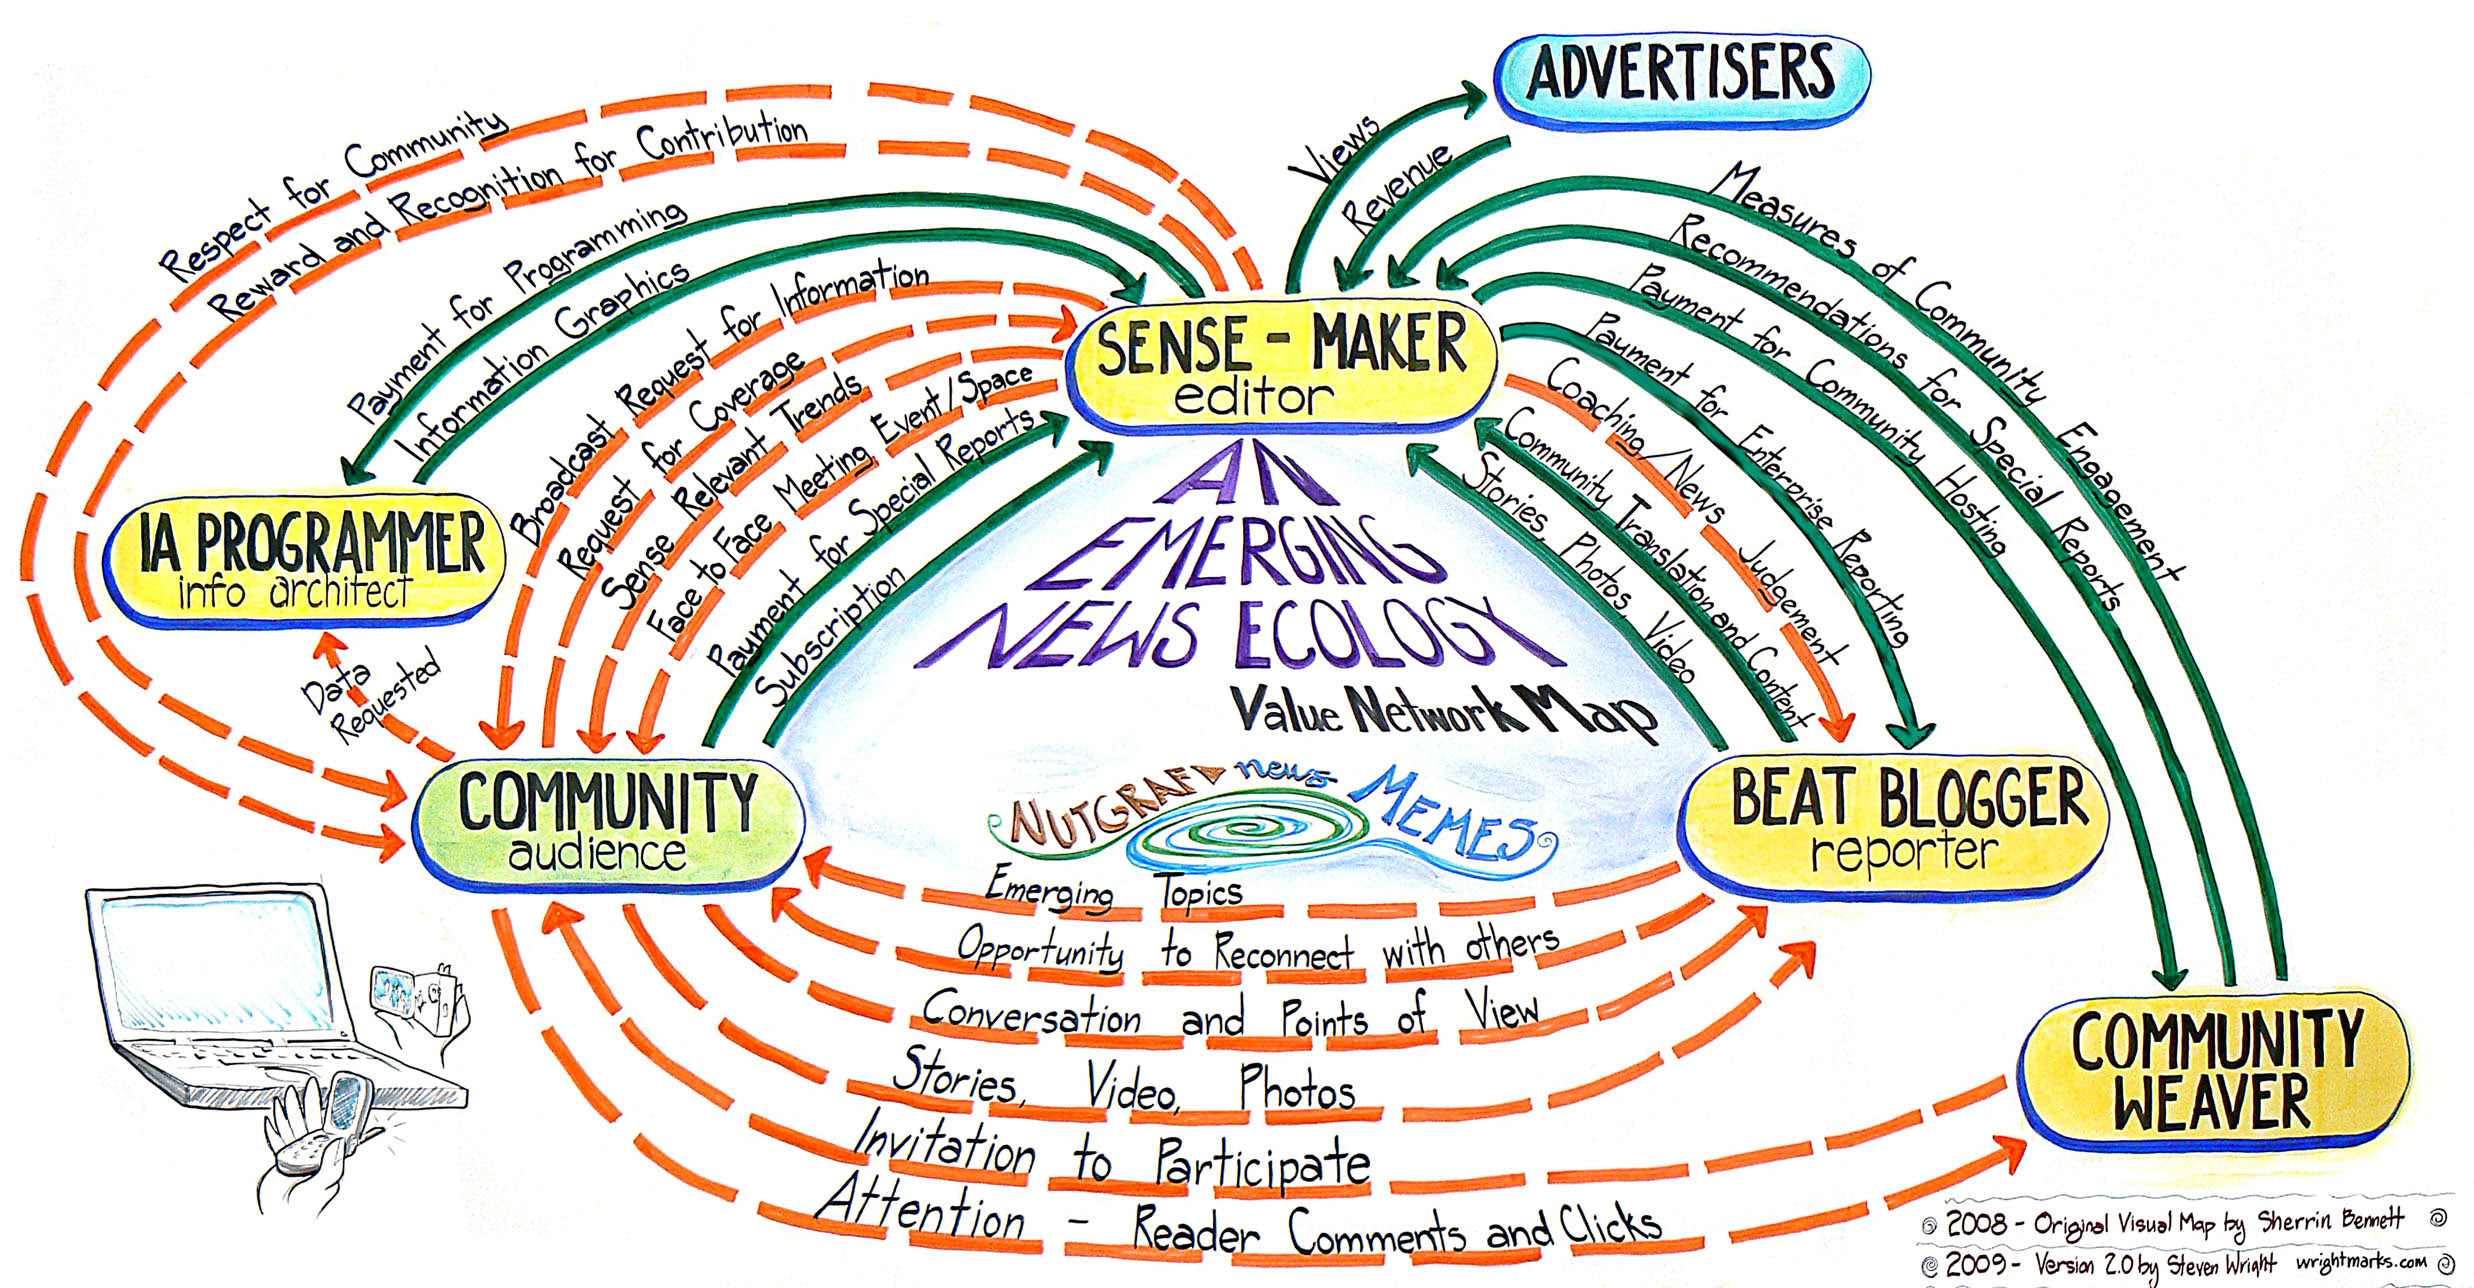 ADVERTISERS
Views
Revenue
Respect for Community
Reward and Recognition for Contribution
Payment for Programming
Information Graphics
Broadcast Request for Information
Request for Coverage
Sense Relevant Trends
Face to Face Meeting Event/Space
Payment for Special Reports
Subscription
SENSE - MAKER
editor
Measures of Community Engagement
Recommendations for Special Reports
Payment for Community Hosting
Payment for Enterprise Reporting
Coaching/News Judgement
Community Translation and Content
Stories, Photos, Video
IA PROGRAMMER
info architect
Data
Requested
AN
EMERGING
NEWS ECOLOGY
Value Network Map
NUTGRAF news MEMES
COMMUNITY
audience
BEAT BLOGGER
reporter
Emerging Topics
Opportunity to Reconnect with others
Conversation and Points of View
Stories, Video, Photos
Invitation to Participate
Attention - Reader Comments and Clicks
COMMUNITY
WEAVER
© 2008 - Original Visual Map by Sherrin Bennett @
© 2009 - Version 2.0 by Steven Wright wrightmarks.com @